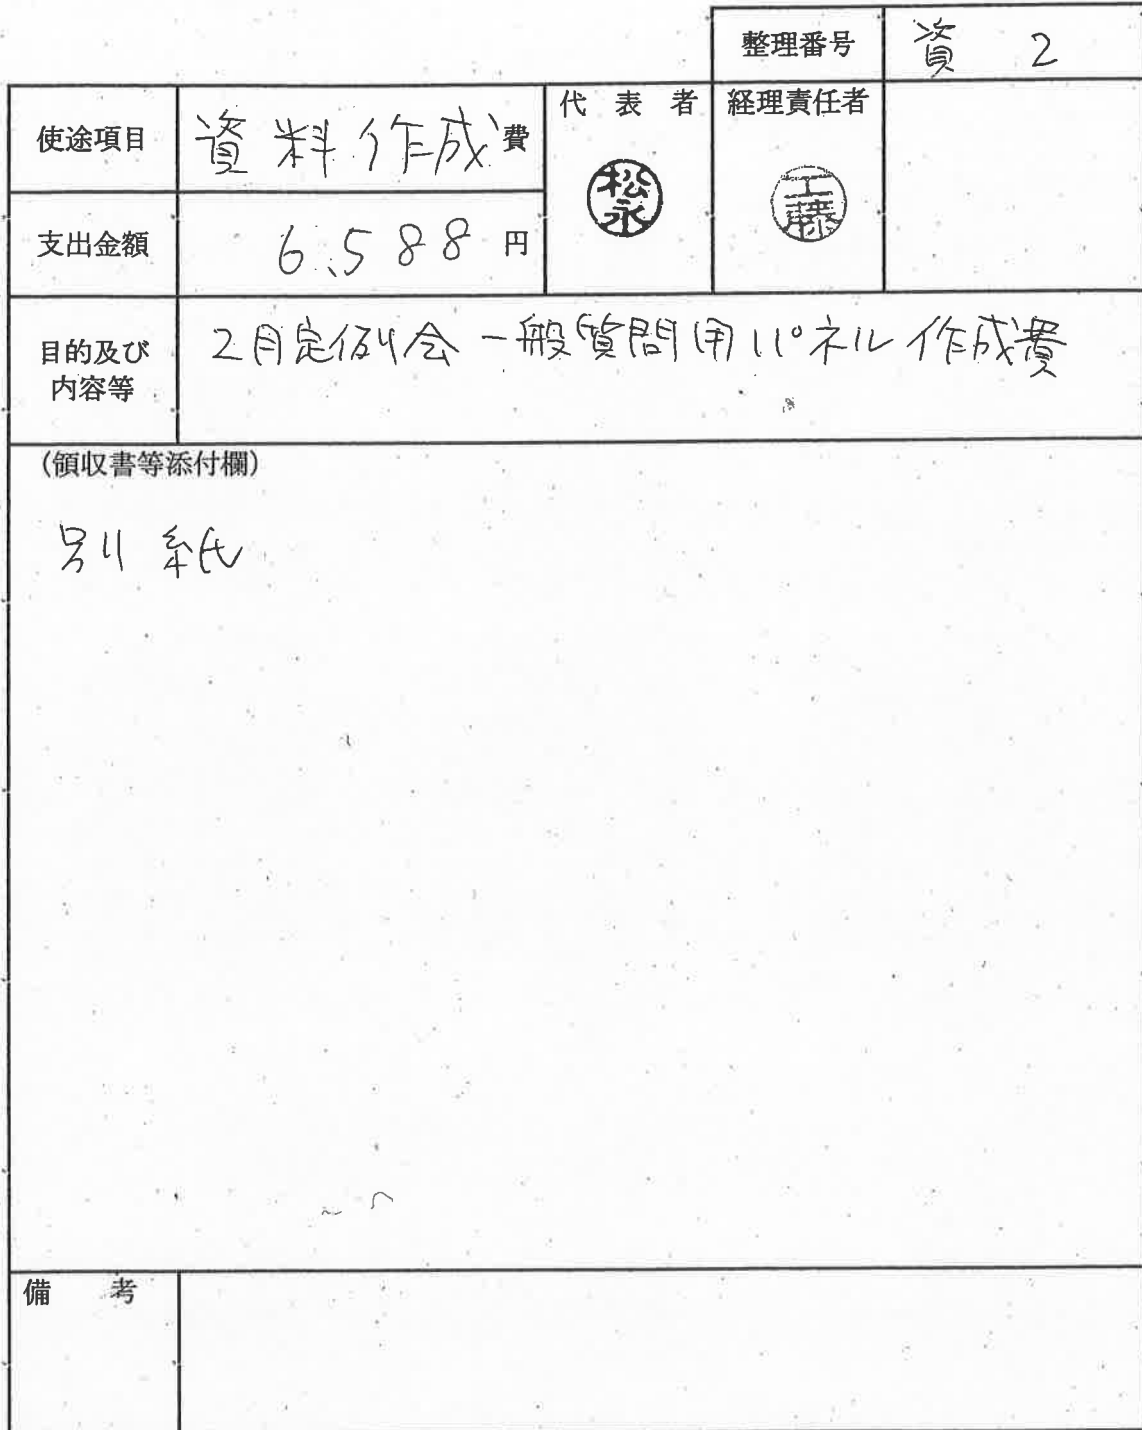 整理番号 資 2
使途項目 資料作成費
代表者 松永
経理責任者 工藤
支出金額 6,588円
目的及び内容等 2月定例会一般質問用パネル作成費
(領収書等添付欄)
別紙
備考